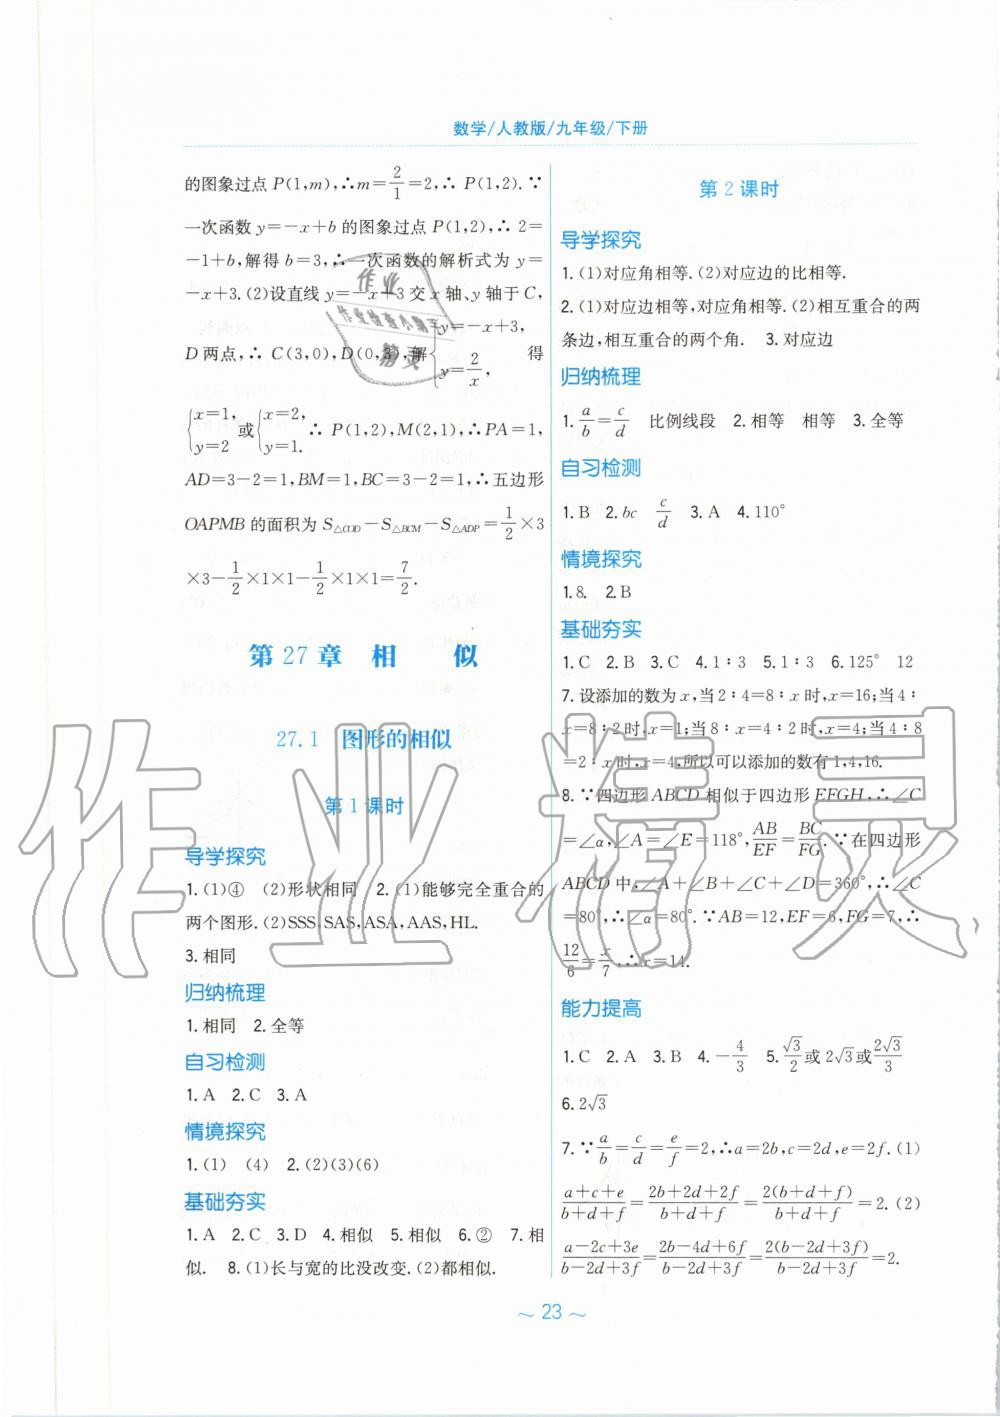 数学/人教版/九年级/下册
的图象过点 P(1,m),∴m=2/1=2,∴ P(1,2).∵
一次函数 y=-x+b 的图象过点 P(1,2),∴ 2=
-1+b,解得 b=3,∴一次函数的解析式为 y=
-x+3.(2)设直线 y=-x+3 交 x 轴、y 轴于 C,
D 两点,∴ C(3,0),D(0,3),解{y=-x+3, y=2/x, 得
{x=1, y=2 或{x=2, y=1. ∴ P(1,2),M(2,1),∴PA=1,
AD=3-2=1,BM=1,BC=3-2=1,∴五边形
OAPMB 的面积为 S△COD-S△BCM-S△ADP=1/2×3
×3-1/2×1×1-1/2×1×1=7/2.
第 27 章 相 似
27.1 图形的相似
第 1 课时
导学探究
1.(1)④ (2)形状相同 2.(1)能够完全重合的
两个图形.(2)SSS,SAS,ASA,AAS,HL.
3.相同
归纳梳理
1.相同 2.全等
自习检测
1.A 2.C 3.A
情境探究
1.(1) (4) 2.(2)(3)(6)
基础夯实
1.A 2.C 3.D 4.相似 5.相似 6.② 7.相
似. 8.(1)长与宽的比没改变.(2)都相似.
第 2 课时
导学探究
1.(1)对应角相等.(2)对应边的比相等.
2.(1)对应边相等,对应角相等.(2)相互重合的两
条边,相互重合的两个角. 3.对应边
归纳梳理
1.a/b=c/d 比例线段 2.相等 相等 3.全等
自习检测
1.B 2.bc c/d 3.A 4.110°
情境探究
1.8. 2.B
基础夯实
1.C 2.B 3.C 4.1∶3 5.1∶3 6.125° 12
7.设添加的数为 x,当 2∶4=8∶x 时,x=16;当 4∶
x=8∶2 时,x=1;当 8∶x=4∶2 时,x=4;当 4∶8
=2∶x 时,x=4,所以可以添加的数有 1,4,16.
8.∵四边形 ABCD 相似于四边形 EFGH,∴∠C
=∠α,∠A=∠E=118°,AB/EF=BC/FG.∵在四边形
ABCD 中,∠A+∠B+∠C+∠D=360°,∴∠C
=80°,∴∠α=80°.∵AB=12,EF=6,FG=7,∴
12/6=x/7,∴x=14.
能力提高
1.C 2.A 3.B 4.-4/3 5.√3/2或 2√3或2√3/3
6.2√3
7.∵a/b=c/d=e/f=2,∴a=2b,c=2d,e=2f.(1)
(a+c+e)/(b+d+f)=(2b+2d+2f)/(b+d+f)=2(b+d+f)/(b+d+f)=2.(2)
(a-2c+3e)/(b-2d+3f)=(2b-4d+6f)/(b-2d+3f)=2(b-2d+3f)/(b-2d+3f)=2.
~ 23 ~
作业精灵
作业
作业检查小帮手
精灵